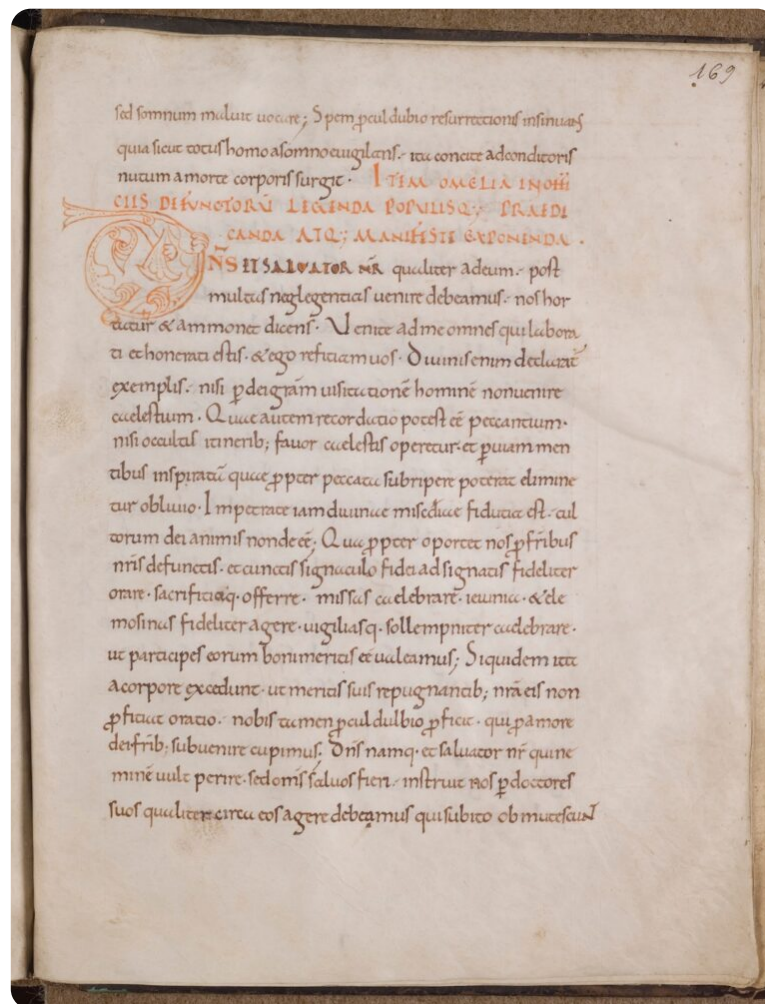 169
sed somnum maluit uocare; Spem ꝓcul dubio resurrectionis insinuans
quia sicut totus homo asomno euigilans. ita concite adconditoris
nutum amorte corporis surgit. ITEM OMELIA INOFFI
CIIS DEFUNCTORŪ LEGENDA POPULISQ; PRAEDI
CANDA ATQ; MANIFESTE EXPONENDA.
DN̄S ET SALUATOR NR̄ qualiter adeum. post
multas neglegentias uenire debeamus. nos hor
tatur & ammonet dicens. Uenite adme omnes qui labora
ti et honerati estis. & ego reficiam uos. Diuinis enim declarat
exemplis. nisi ꝑ dei grām uisitationē hominē nonuenire
caelestium. Quae autem recordatio potest eē peccantium.
nisi occultis itinerib; fauor caelestis operetur. et ꝑuiam men
tibus inspiratā quae ꝓpter peccata subripere poterat elimine
tur obliuio. Impetrate iam diuinae misediae fiducia est. cul
torum dei animis nondeeē; Qua ꝓpter oportet nos ꝓ fr̄ibus
nr̄is defunctis. et cunctis signaculo fidei adsignatis fideliter
orare. sacrificiaq. offerre. missas caelebrare. ieiunia. & ele
mosinas fideliter agere. uigiliasq. sollempniter caelebrare.
ut participes eorum bonimeritis et ualeamus; Siquidem ita
acorpore excedunt. ut meritis suis repugnantib; nr̄a eis non
ꝓficiat oratio. nobis tamen ꝓcul dulbio ꝓficit. qui ꝓ amore
dei fr̄ib; subuenire cupimus; Dn̄s namq. et saluator nr̄ qui ne
minē uult perire. sed om̄s saluos fieri. instruit nos ꝑ doctores
suos qualiter circa eos agere debeamus qui subito obmutescunt